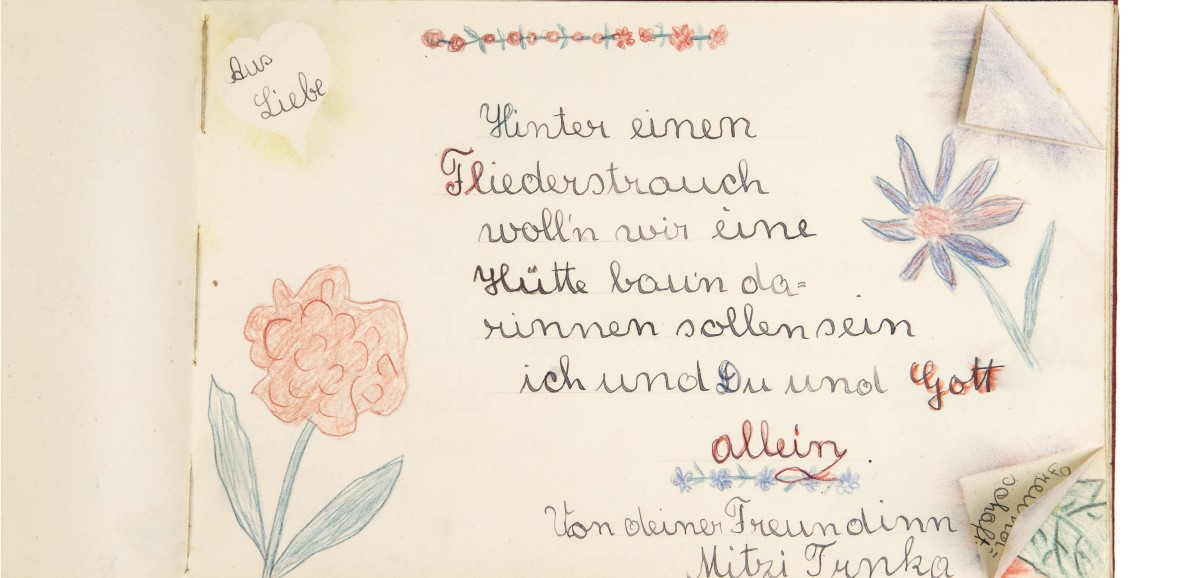 Aus
Liebe
Hinter einen
Fliederstrauch
woll'n wir eine
Hütte baun da=
rinnen sollen sein
ich und Du und Gott
allein.
Von deiner Freundinn
Mitzi Trnka
Freund=
schaft